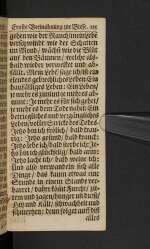 Ernste Vermahnung zur Besse.
gehen wie der Rauch/mein Lebē
verschwindet wie der Schatten
im Mond/ wächst wie die Blät-
an den Bäumen/ welche als-
bald wieder verwelcket und ab-
fället. Mein Lebē/ sage ich/ ist ein
elendes gebrechliches Leben. Ein
baufälliges Leben: Ein Leben/
je mehr es zunimt je mehr es ab-
nimt: Je mehr es für sich gehet/
je mehr es dem Tode nahet. Ein
betriegliches und vergängliches
Leben/ voller Stricke des Todes.
Jetzo bin ich frölich/ bald traw-
rig: Jetzo gesund/ bald kranck:
Jetzo lebe ich/ bald sterbe ich: Jetzo
bin ich glückselig/ bald arm:
Jetzo lache ich/ bald weine ich:
Und also verwandeln sich alle
Dinge/ das kaum etwas eine
Stunde in einem Stande ver-
harret: daher kömt Furcht/ zit-
tern und
Hitz und Kält/ Schwachheit und
Schmertzen: denn folget auff dis
alles